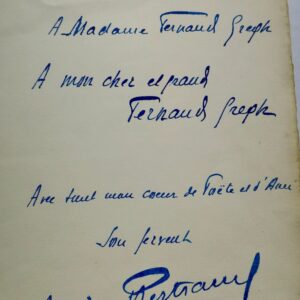 A Madame Fernand Gregh
A mon cher et grand
Fernand Gregh
Avec tout mon coeur de Poète et d'Ami
Son fervent
Bertrand